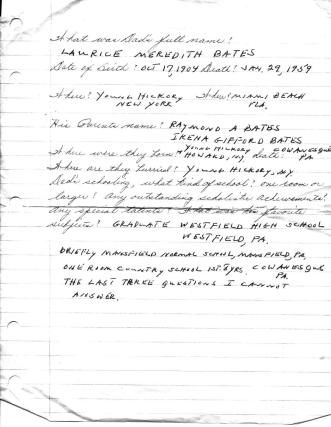 What was Dads full name?
LAURICE MEREDITH BATES
Date of Birth? OCT 17, 1904 Death? JAN. 29, 1959
Where? YOUNG HICKORY Where? MIAMI BEACH
NEW YORK FLA.
His Parents name? RAYMOND A BATES
IRENA GIFFORD BATES
Where were they born? YOUNG HICKORY COWANESQUE
HOWARD, NY PA
Where are they buried? YOUNG HICKORY, NY
Dads schooling, what kind of school? one room or
larger? Any outstanding scholastic achievements?
Any special talents? What was his favorite
subjects? GRADUATE WESTFIELD HIGH SCHOOL
WESTFIELD, PA.
BRIEFLY MANSFIELD NORMAL SCHOOL, MANSFIELD, PA,
ONE ROOM COUNTRY SCHOOL 1ST. 8 YRS, COWANESQUE
PA.
THE LAST THREE QUESTIONS I CANNOT
ANSWER.